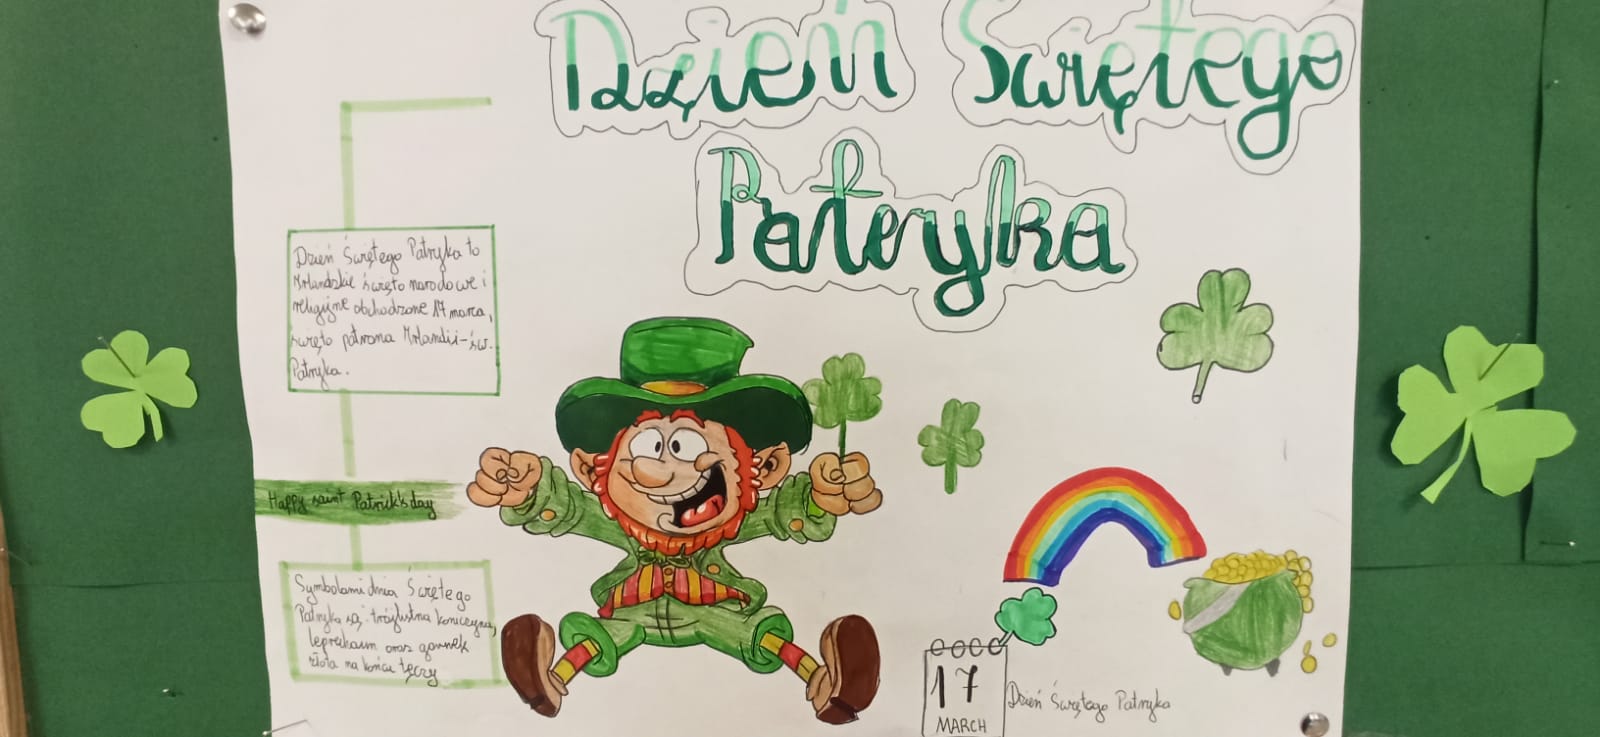 Dzień Świętego
Patryka
Dzień Świętego Patryka to
Irlandzkie święto narodowe i
religijne obchodzone 17 marca,
święto patrona Irlandii-św.
Patryka.
Happy saint Patrick's day
Symbolami dnia Świętego
Patryka są: trójlistna koniczyna,
leprechaun oraz garnek
złota na końcu tęczy
17
MARCH
Dzień Świętego Patryka